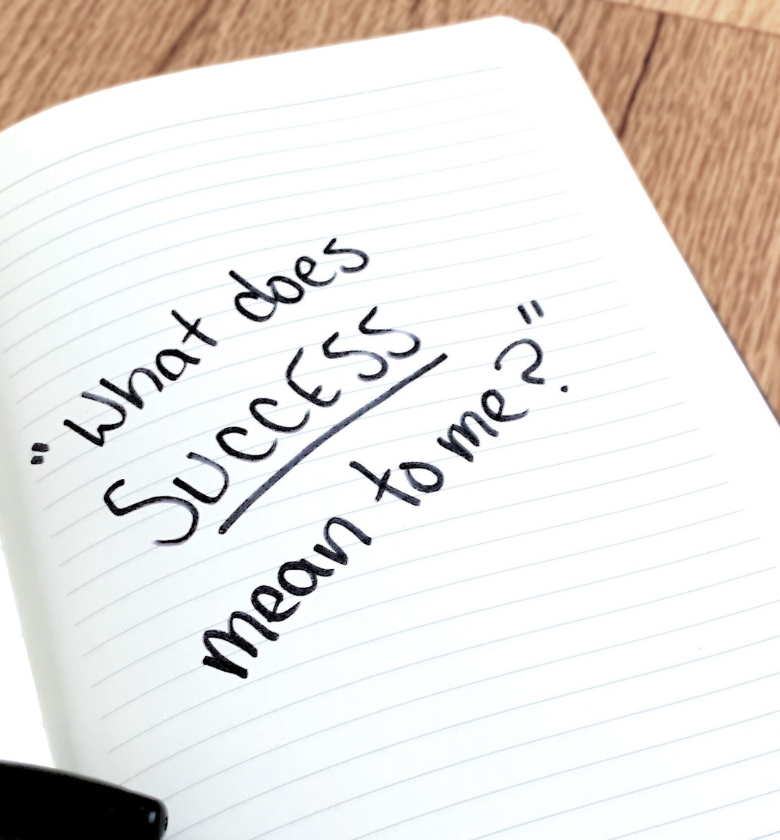 "What does
SUCCESS
mean to me?"